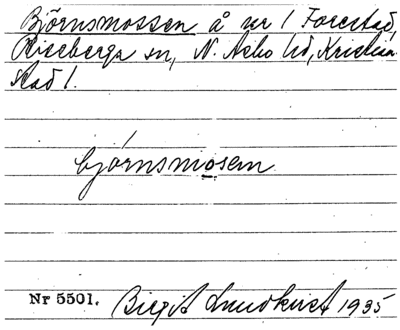 Björnsmossen å nr 1 Forestad,
Riseberga sn, N. Åsbo hd, Kristian-
stad l.
björnsmosen
Nr 5501. Birgit Lundkvist 1935